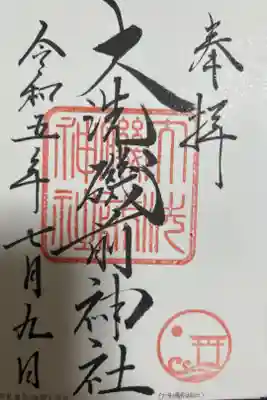 奉拝
大洗磯前神社
令和五年七月九日